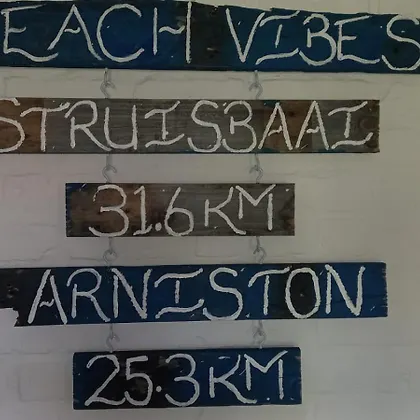 EACH VIBES
STRUISBAAI
31.6 KM
ARNISTON
25.3KM